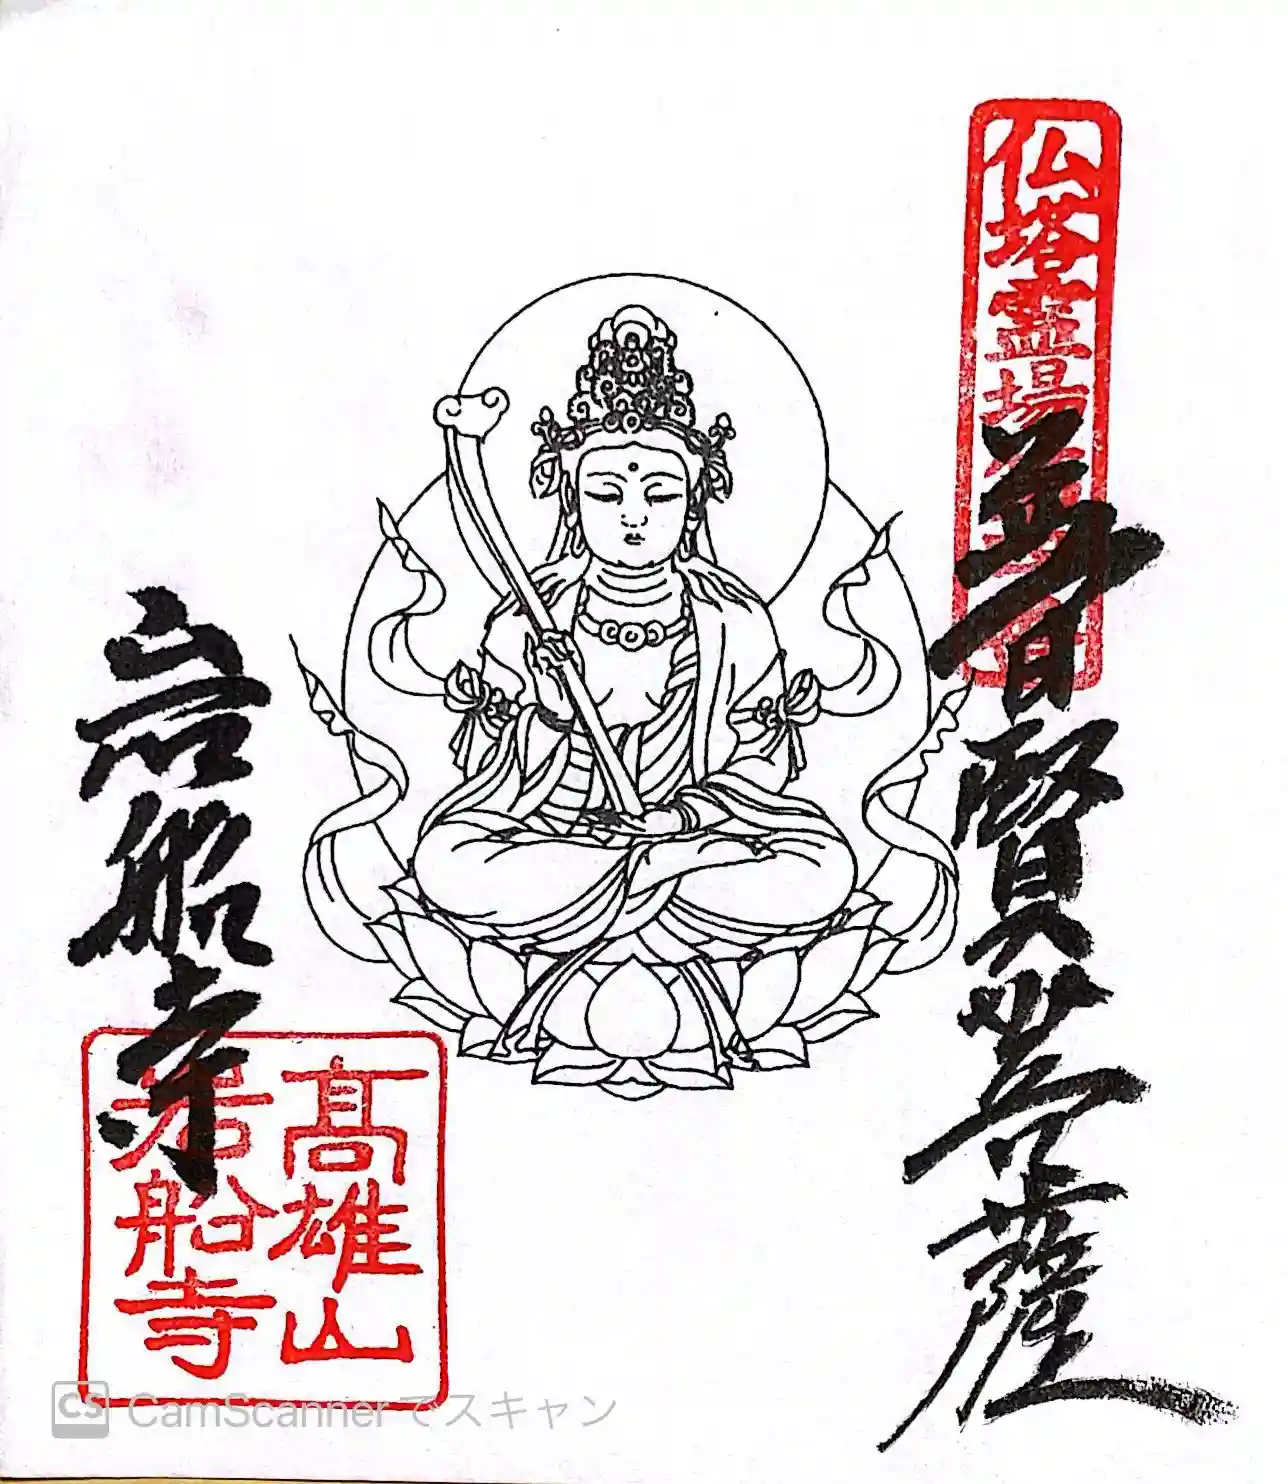 仏塔霊場
普賢菩薩
岩船寺
高雄山
岩船寺
CS CamScanner でスキャン